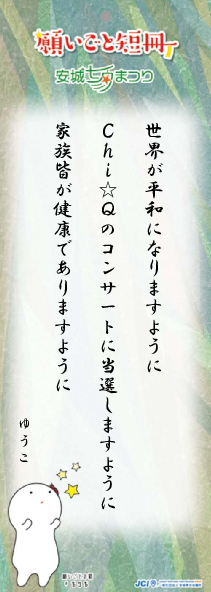 願いごと短冊
安城七夕まつり
世界が平和になりますように
Chi☆Qのコンサートに当選しますように
家族皆が健康でありますように
ゆうこ
JCI